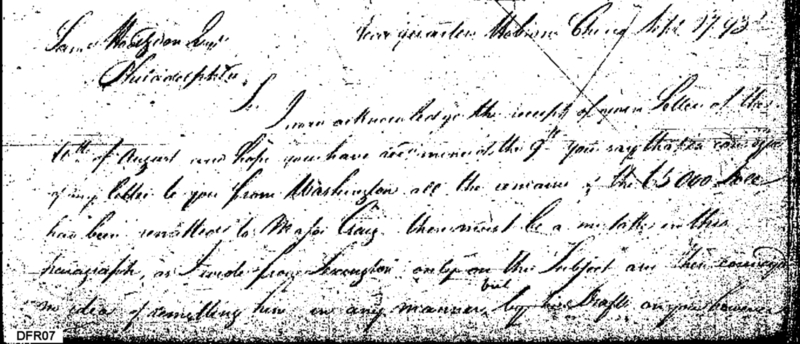 Saml Hodgdon Esqr Head quarters Mobiura Chung Sepr 1793
Philadelphia
Sr
I now acknowledge the receipt of your Letter of the
10th of August and hope you have recovered the 9th You say that in consequence
of my letter to you from Washington all the remains of the 65000 Dolls
has been remitted to Major Craig there must be a mistake in this
paragraph, as I wrote from Lexington only on this Subject and then conveyed
no idea of remitting him in any manner but by his Drafts on you however
DFR07